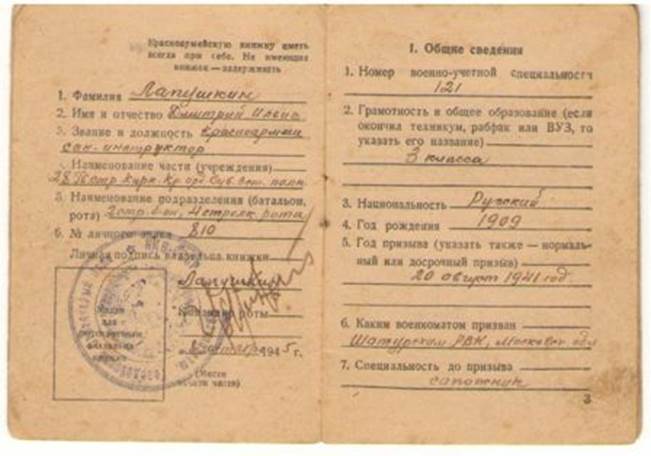 Красноармейскую книжку иметь
всегда при себе. Не имеющих
книжек — задерживать
1. Фамилия Лапушкин
2. Имя и отчество Дмитрий
3. Звание и должность Красноармеец
сан. инструктор
Наименование части (учреждения)
стр. Кирк. Кр.
5. Наименование подразделения (батальон,
рота) 2 стр. б-он, 4 стрелк. рота
6. № личного знака 810
Личная подпись владельца книжки
Лапушкин
роты
1945 г.
(Место
печати части)
1. Общие сведения
1. Номер военно-учетной специальности
121
2. Грамотность и общее образование (если
окончил техникум, рабфак или ВУЗ, то
указать его название)
3 класса
3. Национальность Русский
4. Год рождения 1909
5. Год призыва (указать также — нормаль-
ный или досрочный призыв)
20 август 1941 год.
6. Каким военкоматом призван
Шатурском РВК, Московск. обл
7. Специальность до призыва
сапожник
3